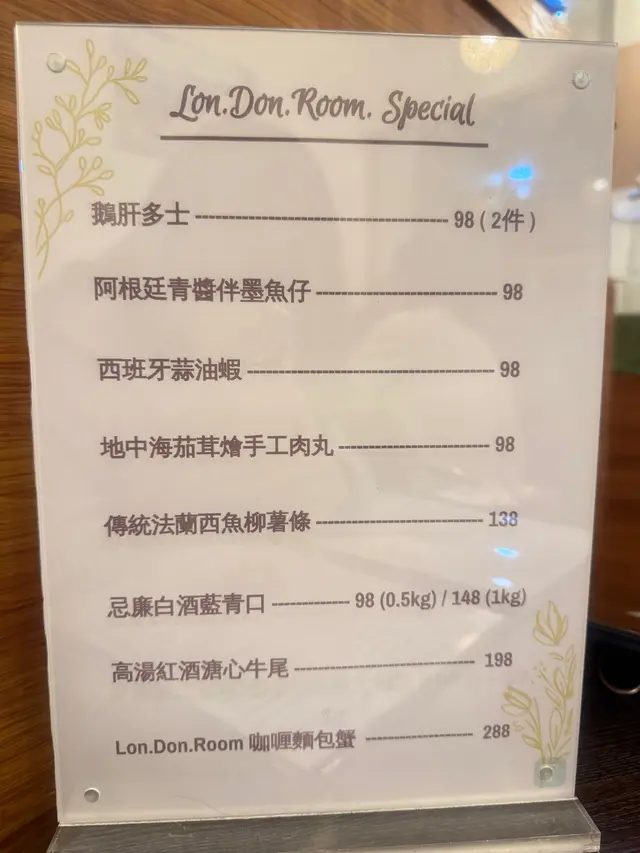 Lon.Don.Room. Special
鵝肝多士 -------------------------------------- 98 ( 2件 )
阿根廷青醬伴墨魚仔 --------------------------- 98
西班牙蒜油蝦 ------------------------------------- 98
地中海茄茸燴手工肉丸 ---------------------- 98
傳統法蘭西魚柳薯條 ------------------------- 138
忌廉白酒藍青口 ------------- 98 (0.5kg) / 148 (1kg)
高湯紅酒溏心牛尾 --------------------------- 198
Lon.Don.Room 咖喱麵包蟹 ---------------- 288